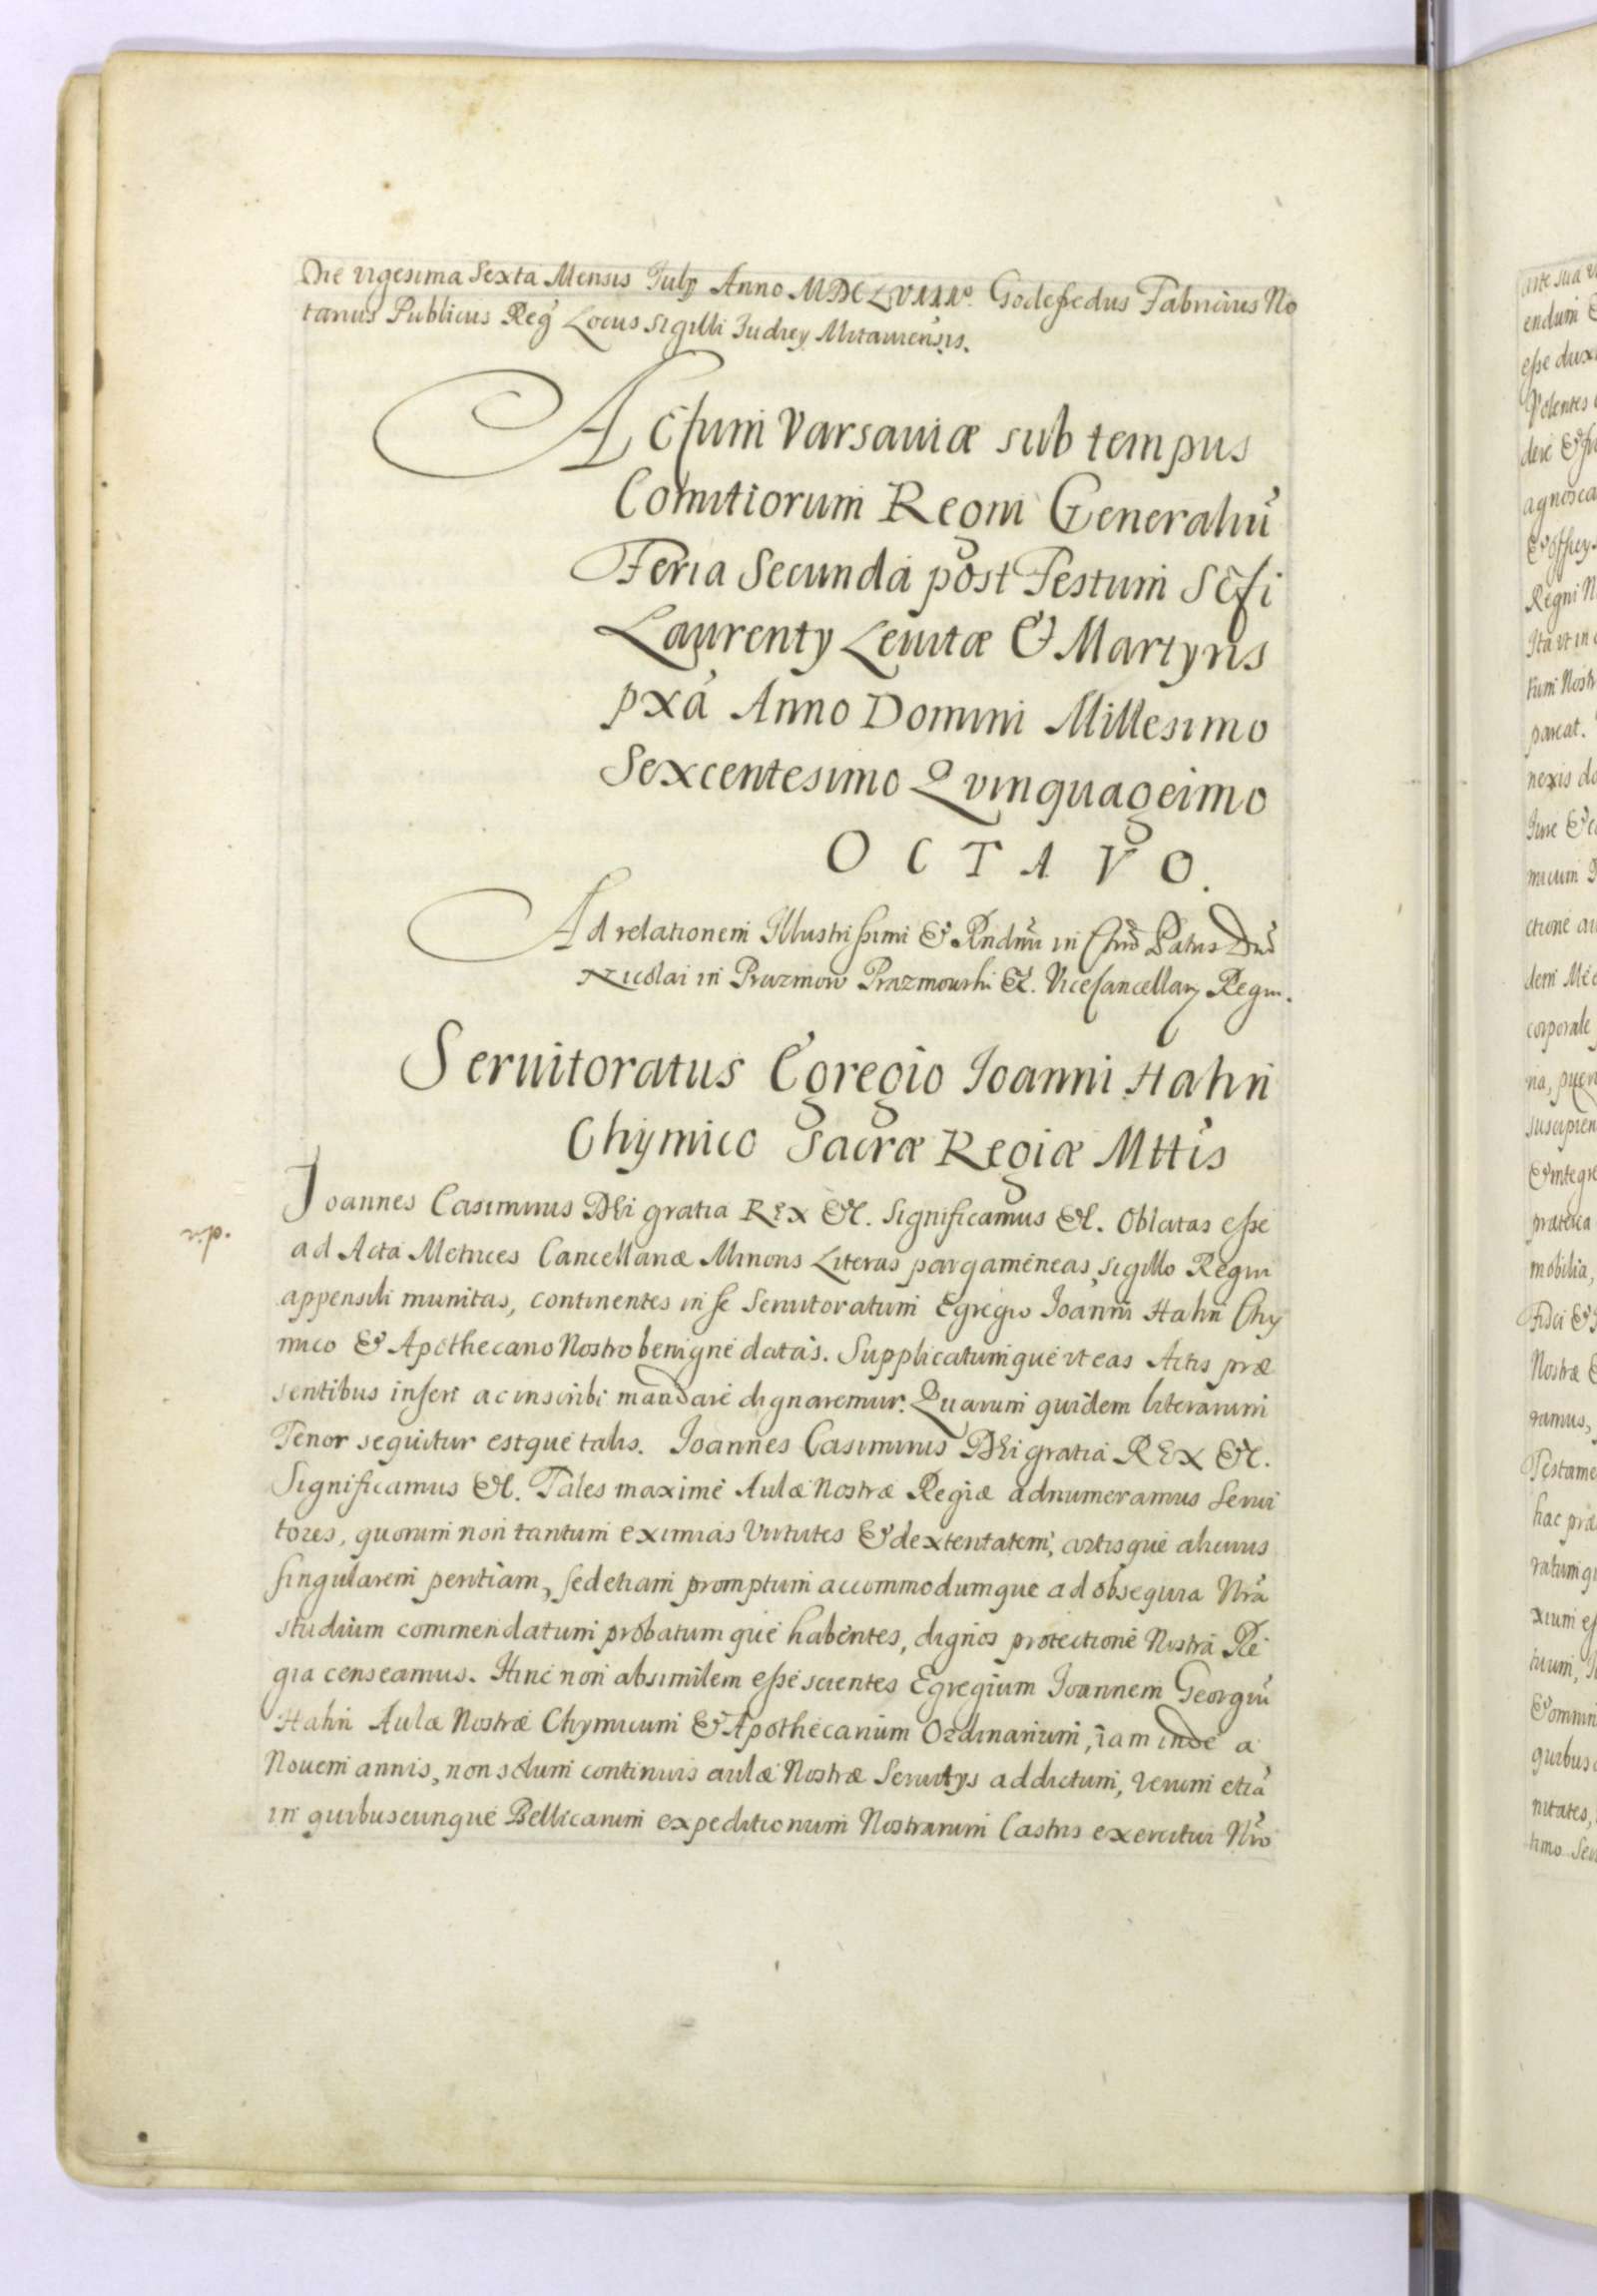 Die vigesima Sexta Mensis July Anno MDCLVIIIo. Godefredus Fabricius No
tarius Publicus Reg Locus sigilli Judicy Mitaviensis.
Actum Varsaviæ sub tempus
Comitiorum Regni Generaliũ
Feria Secunda post Festum Scti
Laurenty Levitæ & Martyris
pxa Anno Domini Millesimo
Sexcentesimo Qvinquageimo
OCTAVO.
Ad relationem Illustrissimi & Rndmi in Chro Patris Dni
Nicolai in Prazmow Prazmowski &c. Vicecancellary Regni.
Servitoratus Egregio Joanni Hahn
Chymico Sacræ Regiæ Mttis
Joannes Casimirus Dei gratia REX &c. Significamus &c. Oblatas esse
v.p.
ad Acta Metrices Cancellariæ Minoris Literas pargameneas, sigillo Regni
appensili munitas, continentes in se Servitoratum Egregio Joanni Hahn Chy
mico & Apothecario Nostro benigne datas. Supplicatumque vt eas Actis præ
sentibus inseri ac inscribi mandare dignaremur. Quarum quidem literarum
Tenor sequitur estque talis. Joannes Casimirus Dei gratia REX &c.
Significamus &c. Tales maxime Aulæ Nostræ Regiæ adnumeramus Servi
tores, quorum non tantum eximias Virtutes & dexteritatem, artisque alicuius
singularem peritiam, sed etiam promptum accommodumque ad obsequia Nra
studium commendatum probatumque habentes, dignos protectione Nostra Re
gia censeamus. Hinc non absimilem esse scientes Egregium Joannem Georgiũ
Hahn Aulæ Nostræ Chymicum & Apothecarium Ordinarium, iam inde a
Novem annis, non solum continuis aulæ Nostræ Servitys addictum, verum etiã
in quibuscunque Bellicarum expeditionum Nostrarum Castris exercitui Nro
arte sua
endum
esse dux
Volentes
agnosca
Regni N
Ita vt in
tum Nostr
pareat.
nexis
Jure
micum
ctione
dem
corporale
ria,
suscipien
& integre
præterea
mobilia,
Fisci &
Nostræ
ramus,
Testame
hac præ
ratum
xium
& omnin
quibus
nitates,
timo